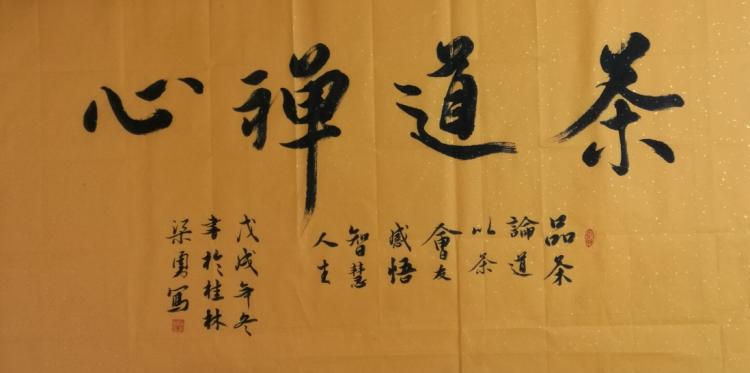 茶道禅心
品茶
論道
以茶
會友
感悟
智慧
人生
戊戌年冬
書於桂林
梁勇寫